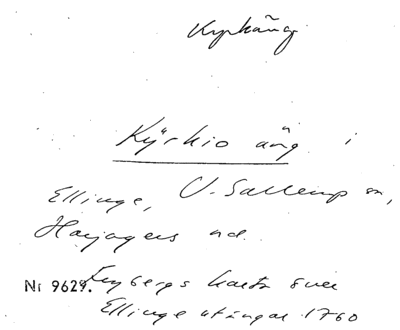 Kyrkäng
Kÿrkio äng i
Ellinge, V. Sallerup sn,
Harjagers hd.
Nr 9629. Rybergs karta över
Ellinge utängar 1760